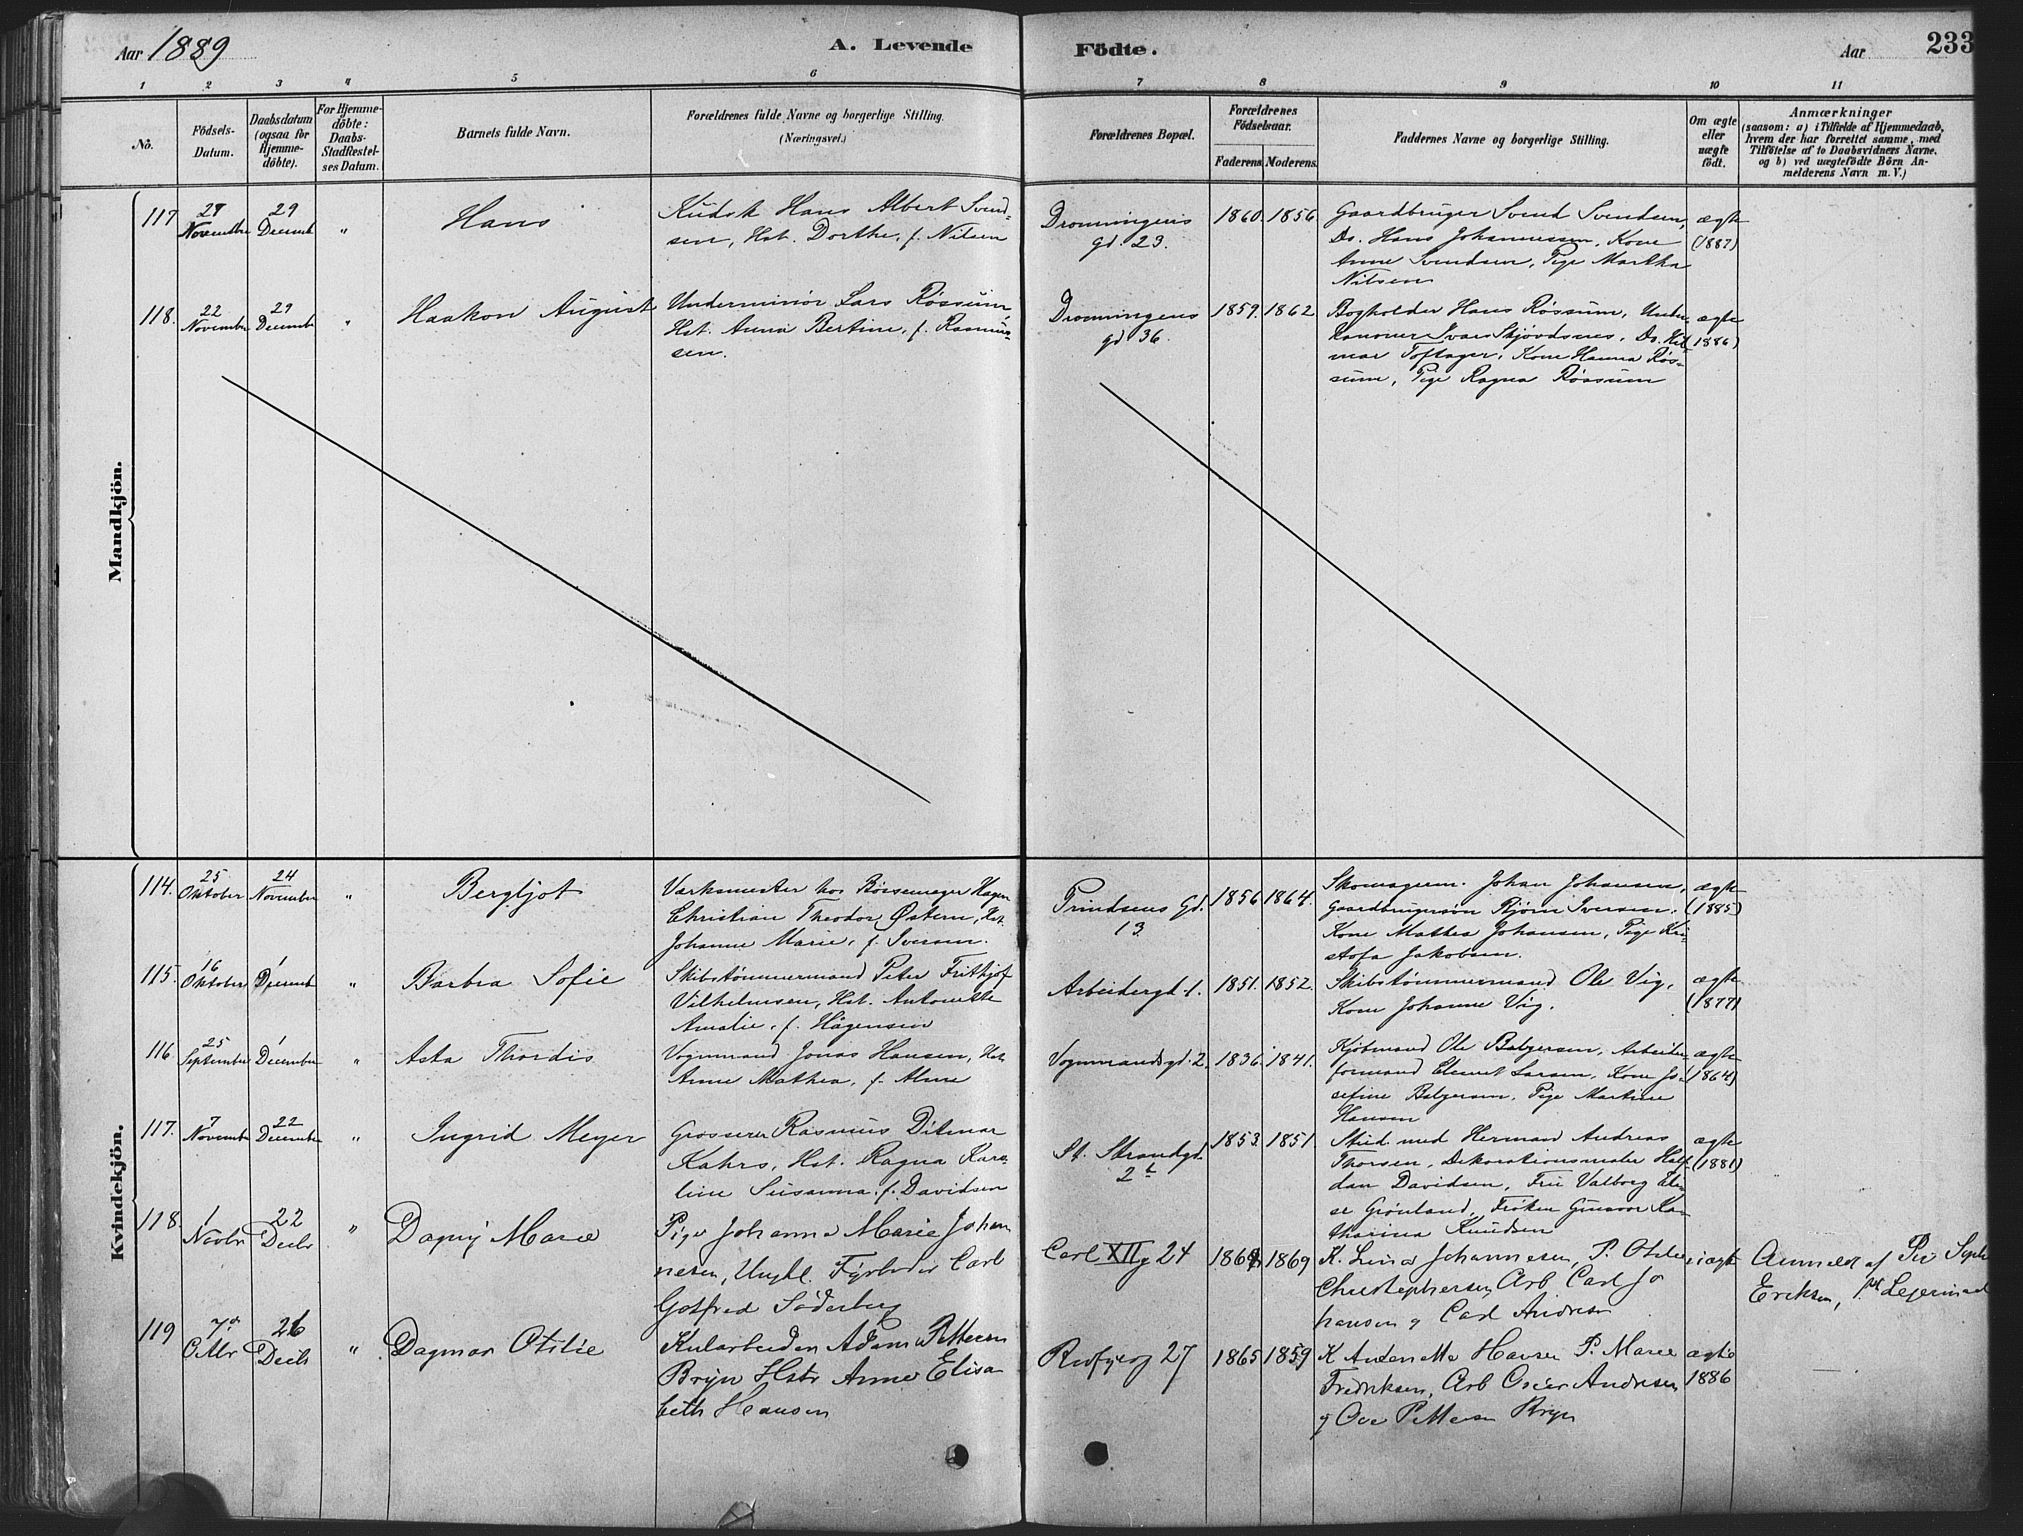 Aar 1889
A. Levende
Födte.
Aar
233
1 2 3 4 5 6 7 8 9 10 11
No.
Födsels-
Datum.
Daabsdatum
(ogsaa för
Hjemme-
döbte).
For Hjemme-
döbte:
Daabs-
Stadfæstel-
ses Datum.
Barnets fulde Navn.
Forældrenes fulde Navne og borgerlige Stilling.
(Næringsvei.)
Forældrenes Bopæl.
Forældrenes
Födselsaar.
Faderens. Moderens.
Faddernes Navne og borgerlige Stilling.
Om ægte
eller
uægte
födt.
Anmærkninger
(saasom: a) i Tilfælde af Hjemmedaab,
hvem der har forrettet samme, med
Tilföielse af to Daabsvidners Navne,
og b) ved uægtefödte Börn An-
melderens Navn m. V.)
Mandkjön.
117 27 November 29 Decemb " Hans
Kudsk Hans Albert Svend-
sen, Hst. Dorthe, f. Nilsen
Dronningens
gd. 23.
1860. 1856.
Gaardbruger Svend Svendsen,
Do. Hans Johannessen, Kone
Anne Svendsen, Pige Martha
Nilsen
ægte
(1887)
118. 22 November 29 Decembr " Haakon August
Underminör Lars Røssum,
Hst. Anna Bertine, f. Rasmus-
sen.
Dronningens
gd 36.
1859. 1862
Bogholder Hans Røssum, Under-
kanoner Ivar Skjövdsnes, Do. Hil-
mar Toftager, Kone Hanna Røs-
sum, Pige Ragna Røssum
ægte
(1886)
Kvindekjön.
114. 25 Oktober 24 November " Bergljot
Værksmester hos Børsemager Hagen
Christian Theodor Østern, Hst.
Johanne Marie, f. Iversen.
Prindsens Gd.
13.
1856 1864.
Skomagerm. Johan Johansen,
Gaardbrugersön Bjørn Iversen,
Kone Mathea Johansen, Pige Kri-
stofa Jakobsen.
ægte
(1885)
115. 16 Oktober 1 Decemb " Barbra Sofie
Skibstømmermand Peter Frithjof
Vilhelmsen, Hst. Antonette
Amalie, f. Hågensen
Arbeidergd. 1.
1851. 1852.
Skibstømmermand Ole Vig,
Kone Johanne Vig.
ægte
(1877)
116 25 September 1 December " Asta Thordis
Vognmand Jonas Hansen, Hst.
Anne Mathea, f. Alme
Vognmandsgd. 2.
1836. 1841.
Kjöbmand Ole Bolgersen, Arbeider-
formand Elemet Larsen, Kone Jo-
sefine Bolgersen, Pige Martine
Hansen
ægte
(1864)
117. 7 November 22 December " Ingrid Meyer
Grosserer Rasmus Ditmar
Kahrs, Hst. Ragna Karo-
line Susanna, f. Davidsen
St. Strandgd.
2 b
1853 1851
Stud. med Herman Andreas
Thorsen, Dekorationsmaler Half-
dan Davidsen, Fru Valborg Eli-
se Grönland, Frøken Gunvor Ka-
tharina Knudsen
ægte
(1881)
118. 1 Novbr 22 Decbr " Dagny Marie
Pige Johanna Marie Johan
nesen, Ungkl. Fyrbøder Carl
Gotfred Söderberg
Carl XIIg 24
1869 1869
K. Lina Johannesen, P. Otilie
Christophersen, Arb. Carl Jo
hansen og Carl Andresen
uægte
Anmeldt af Sophie
Eriksen,
119 7de Octbr 26 Decbr " Dagmar Otilie
Kularbeider Adam Pettersen
Bryn Hstr Anne Elisa
beth Hansen
Rødfyldg 27
1865 1859
K Andenette Hansen P. Marie
Fredriksen, Arb Oscar Andresen
og Ove Pettersen Bryn
ægte
1886